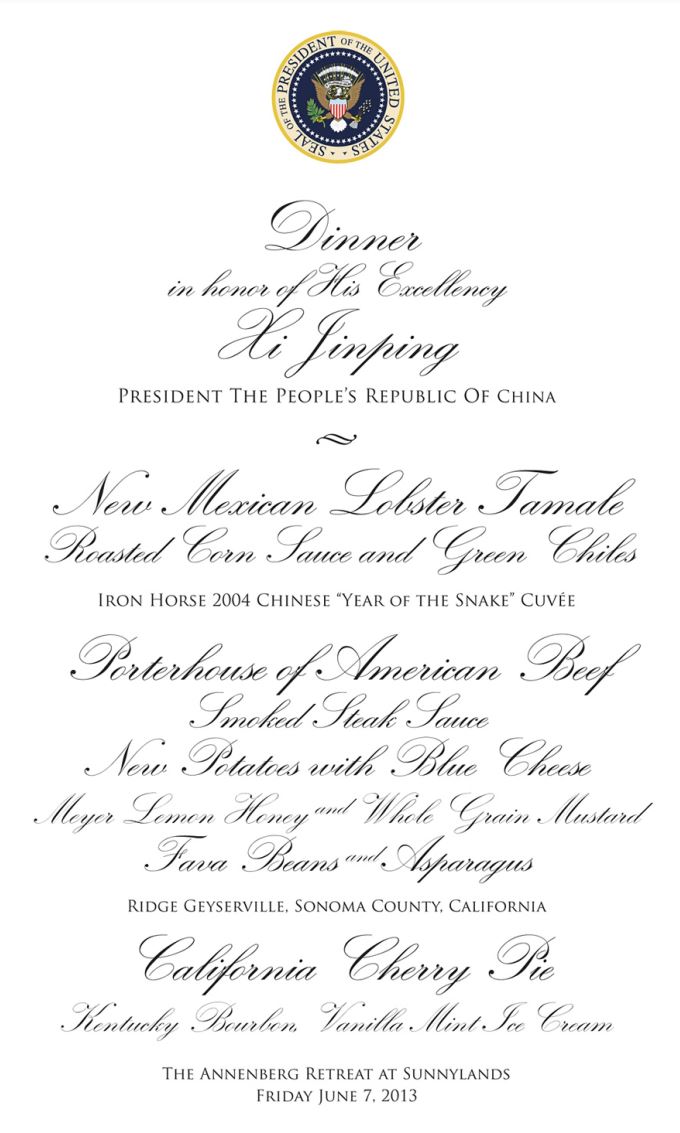 SEAL OF THE PRESIDENT OF THE UNITED STATES
Dinner
in honor of His Excellency
Xi Jinping
PRESIDENT THE PEOPLE’S REPUBLIC OF CHINA
New Mexican Lobster Tamale
Roasted Corn Sauce and Green Chiles
IRON HORSE 2004 CHINESE “YEAR OF THE SNAKE” CUVÉE
Porterhouse of American Beef
Smoked Steak Sauce
New Potatoes with Blue Cheese
Meyer Lemon Honey and Whole Grain Mustard
Fava Beans and Asparagus
RIDGE GEYSERVILLE, SONOMA COUNTY, CALIFORNIA
California Cherry Pie
Kentucky Bourbon, Vanilla Mint Ice Cream
THE ANNENBERG RETREAT AT SUNNYLANDS
FRIDAY JUNE 7, 2013